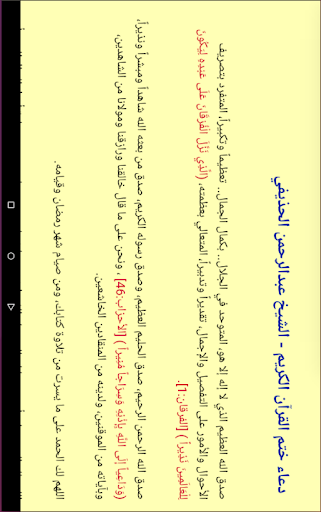 دعاء ختم القرآن الكريم - الشيخ عبدالرحمن الحذيفي
صدق الله العظيم الذي لا إله إلا هو، المتوحد في الجلال.. بكمال الجمال.. تعظيماً وتكبيراً، المتفرد بتصريف
الأحوال والأمور على التفصيل والإجمال، تقديراً وتدبيراً، المتعالي بعظمته، (الَّذِي نَزَّلَ الْفُرْقَانَ عَلَى عَبْدِهِ لِيَكُونَ
لِلْعَالَمِينَ نَذِيراً ) [الفرقان:1].
صدق الله الرحمن الرحيم، صدق الحليم العظيم، وصدق رسوله الكريم، صدق من بعثه الله شاهداً ومبشراً ونذيراً،
(وَدَاعِياً إِلَى اللَّهِ بِإِذْنِهِ وَسِرَاجاً مُنِيراً ) [الأحزاب:46] ، ونحن على ما قال خالقنا ورازقنا ومولانا من الشاهدين،
وبآياته من الموقنين، ولدينه من المنقادين الخاشعين.
اللهم لك الحمد على ما يسرت من تلاوة كتابك، ومن صيام شهر رمضان وقيامه.